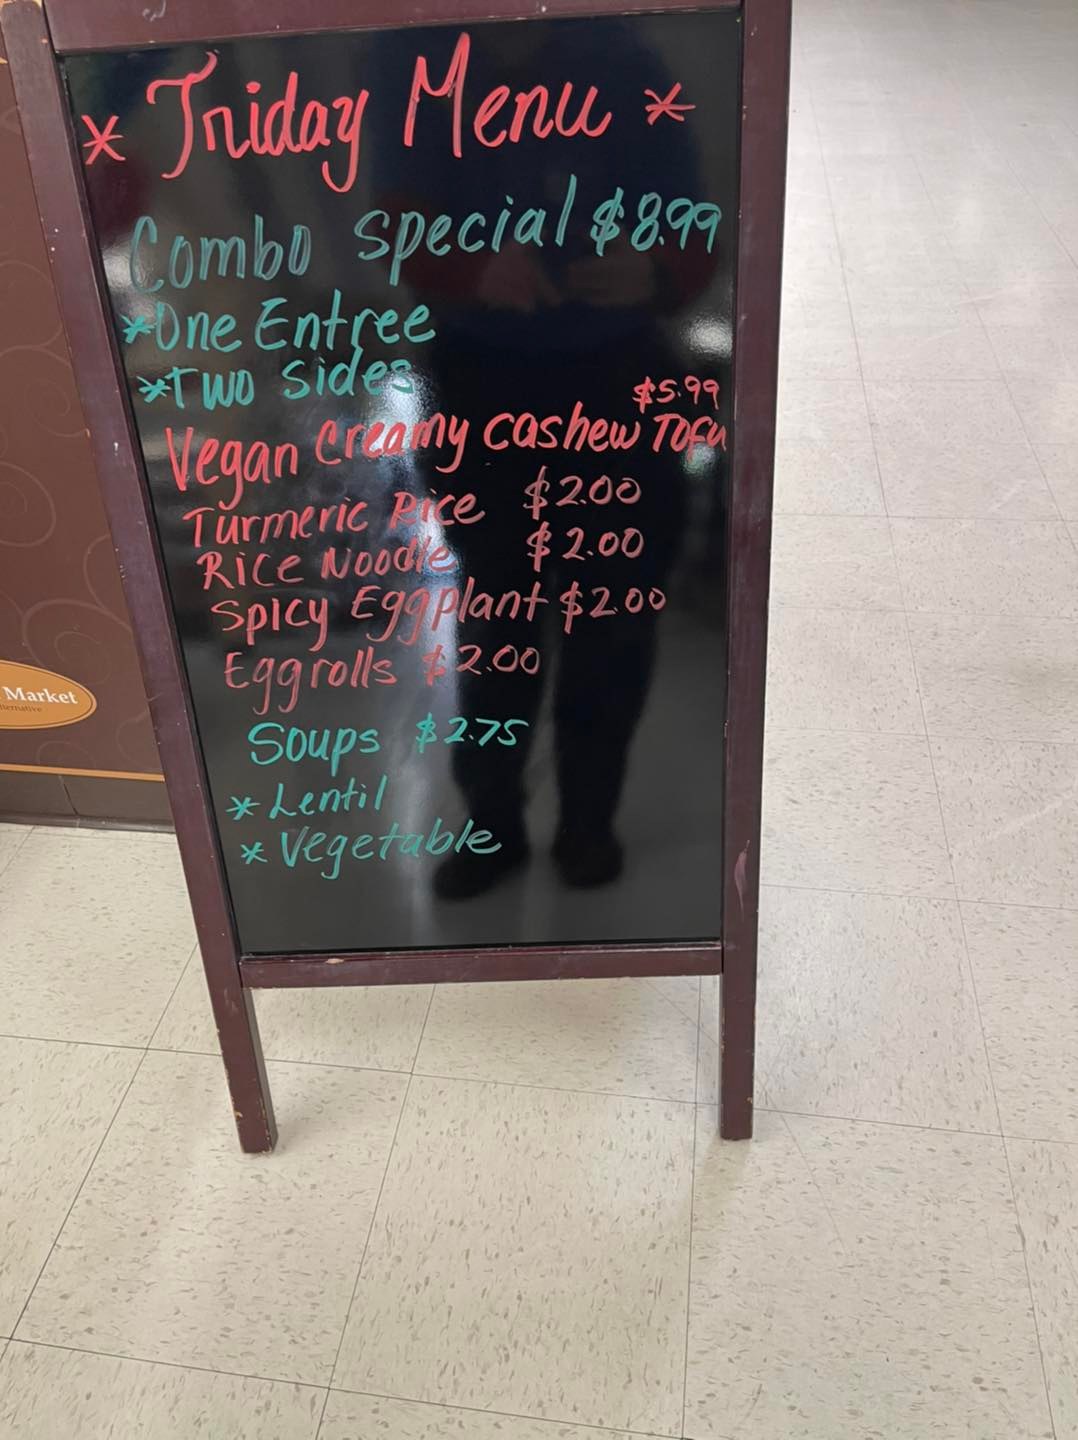 * Friday Menu *
Combo special $8.99
*One Entree
*Two sides
$5.99
Vegan Creamy cashew Tofu
Turmeric Rice $2.00
Rice Noodle $2.00
Spicy Eggplant $2.00
Eggrolls $2.00
Soups $2.75
* Lentil
* Vegetable
Market